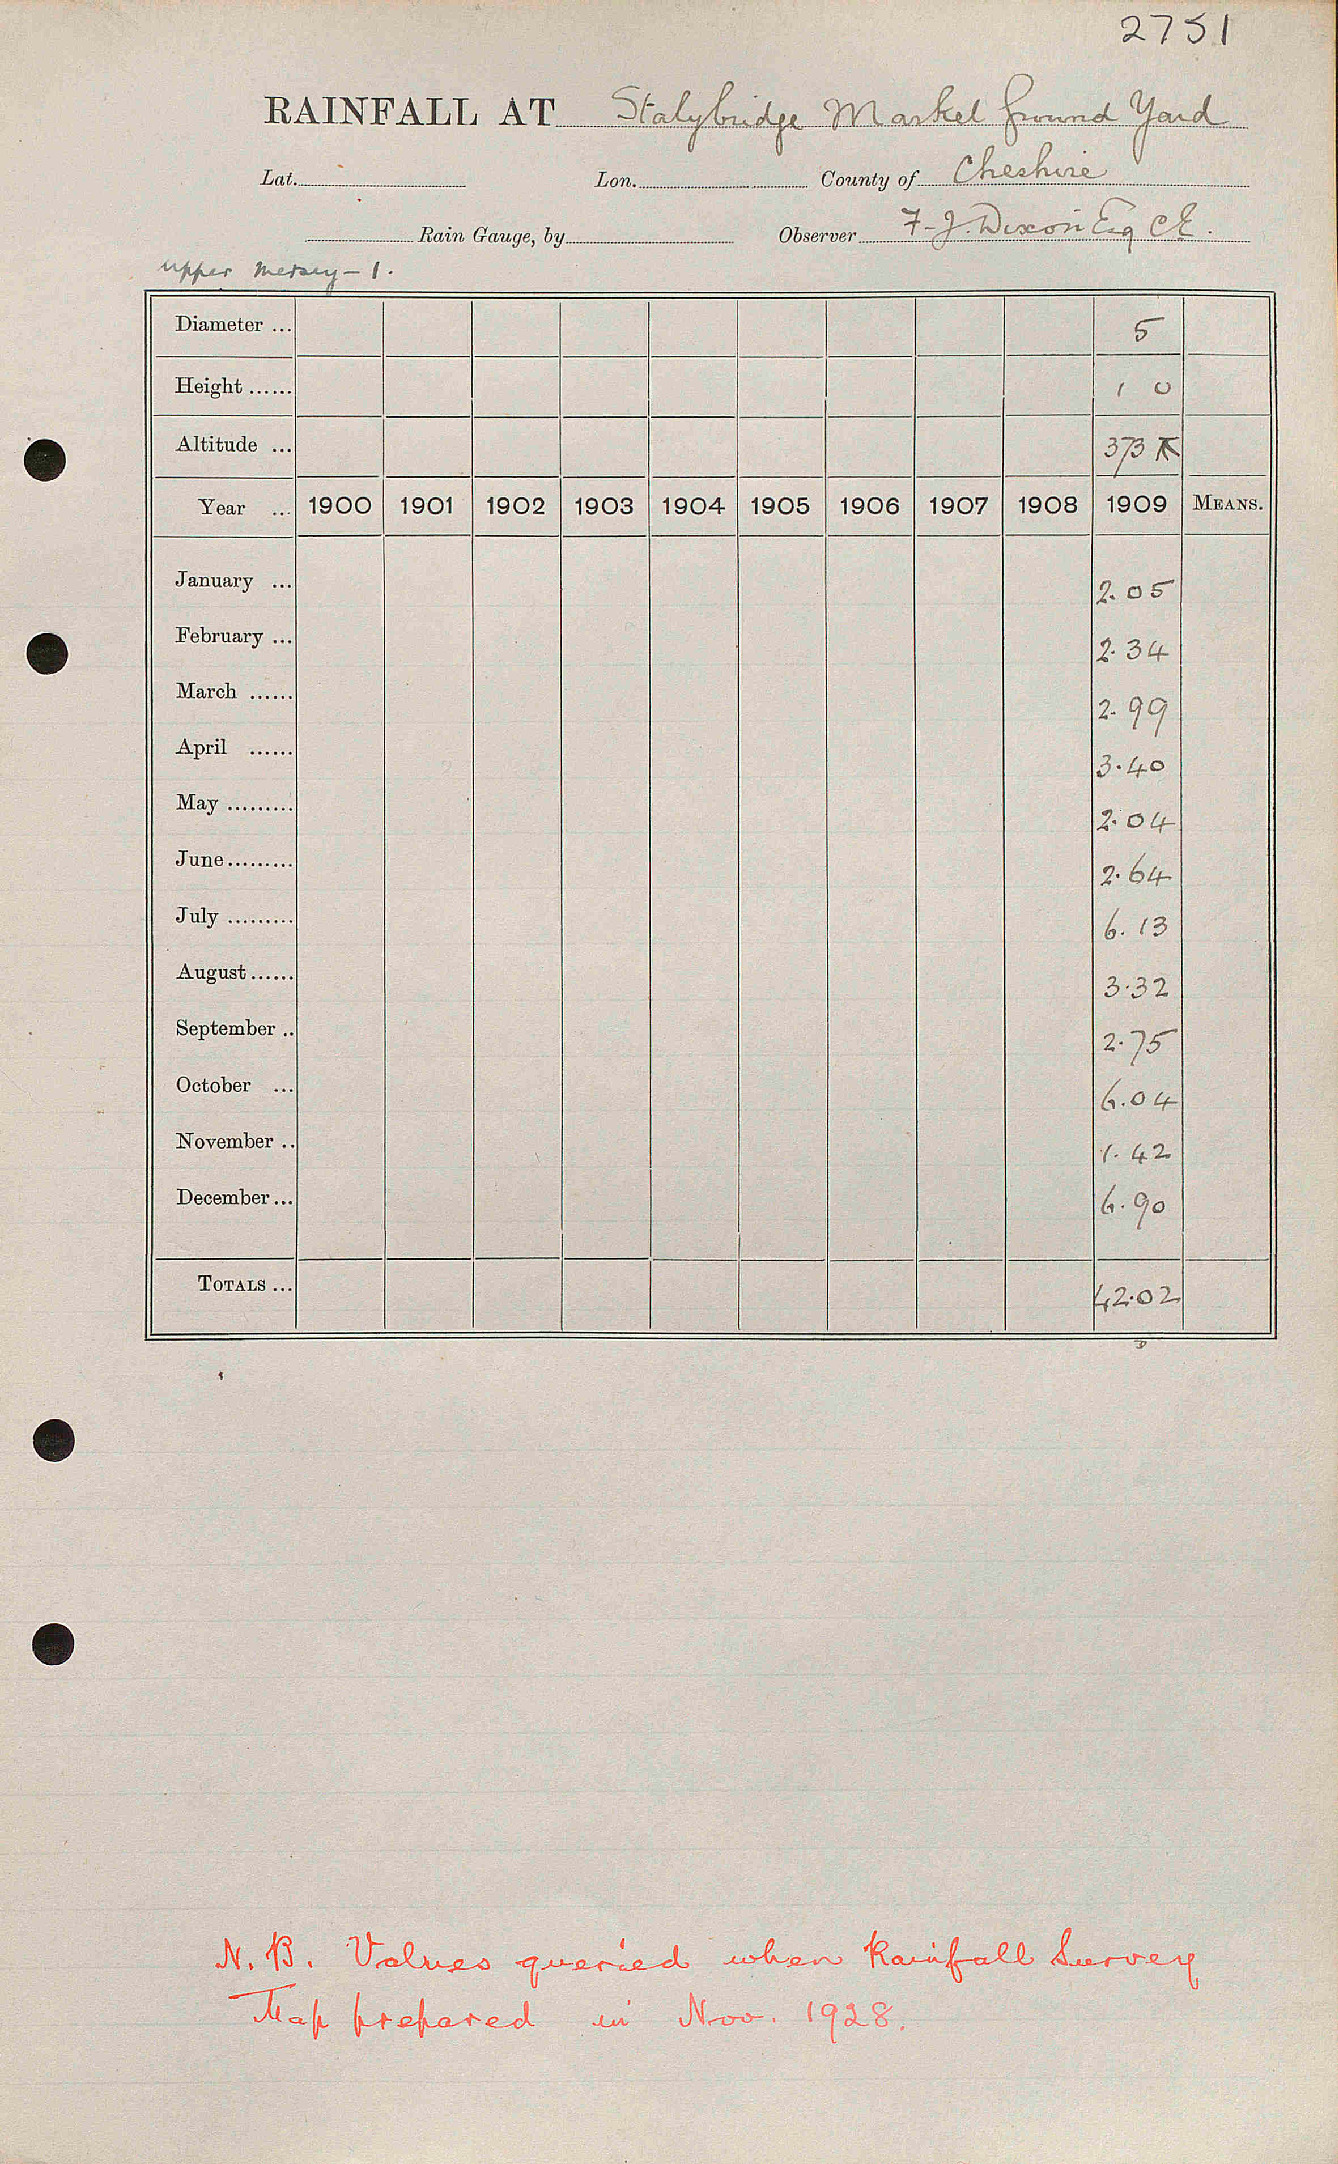 2751
RAINFALL AT Stalybridge Market Ground Yard
Lat. Lon. County of Cheshire
Rain Gauge, by Observer F. J. Dixon Esq CE.
Upper Mersey - 1.
Diameter ... 5
Height ...... 1 0
Altitude ... 373
Year ... 1900 1901 1902 1903 1904 1905 1906 1907 1908 1909 MEANS.
January ... 2.05
February ... 2.34
March ...... 2.99
April ...... 3.40
May ......... 2.04
June ......... 2.64
July ......... 6.13
August ...... 3.32
September .. 2.75
October ... 6.04
November .. 1.42
December ... 6.90
TOTALS ... 42.02
N.B. Values queried when Rainfall Survey
Map prepared in Nov. 1928.